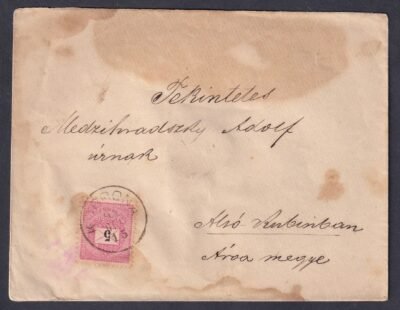 Tekintetes
Medzihradszky Adolf
úrnak
Alsó Kubinban
Árva megye
5